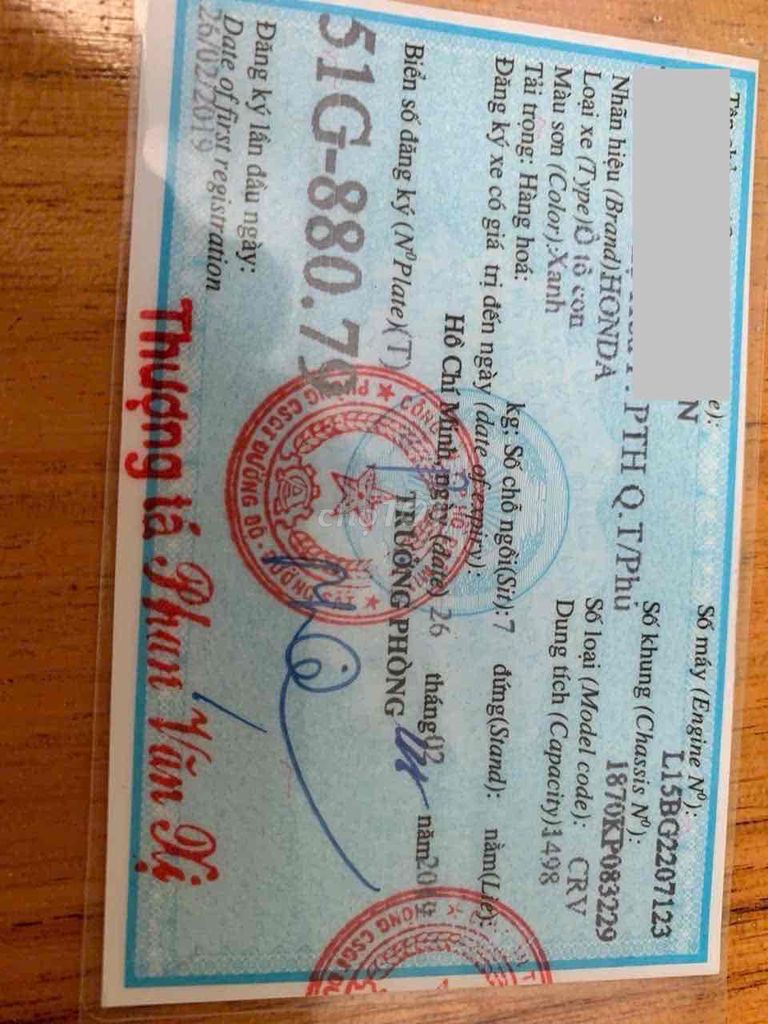 Số máy (Engine Nº):
L15BG2207123
Số khung (Chassis Nº):
PTH Q.T/Phú
1870KP083229
Nhãn hiệu (Brand)HONDA
Số loại (Model code): CRV
Loại xe (Type)Ô tô con
Dung tích (Capacity)1498
Màu sơn (Color):Xanh
Tải trọng: Hàng hoá: kg; Số chỗ ngồi(Sit):7 đứng(Stand): nằm(Lie):
Đăng ký xe có giá trị đến ngày (date of expiry):
Hồ Chí Minh, ngày (date) 26 tháng02 năm2019
Biển số đăng ký (NºPlate)(T)
TRƯỞNG PHÒNG
51G-880.79
Đăng ký lần đầu ngày:
Date of first registration
26/02/2019
Thượng tá Phan Văn Xị